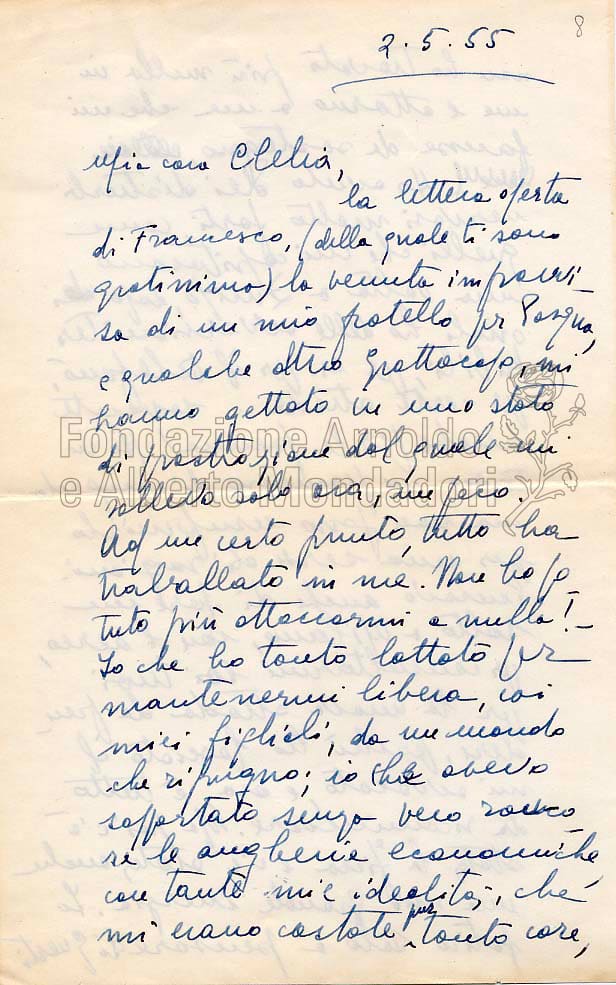 8
2.5.55
Mia cara Clelia,
la lettera aperta
di Francesco, (della quale ti sono
gratissima) la venuta improvvi
sa di un mio fratello per Pasqua,
e qualche altro grattacapo, mi
hanno gettato in uno stato
di prostrazione dal quale mi
sollevo solo ora, un poco.
Ad un certo punto, tutto ha
traballato in me. Non ho po
tuto più attaccarmi a nulla! -
Io che ho tanto lottato per
mantenermi libera, coi
miei figlioli, da un mondo
che ripugno; io che avevo
sopportato senza vero ranco
re le angherie economiche,
con tante mie idealità, che
mi erano costate pur tanto care,
Fondazione Arnoldo
e Alberto Mondadori